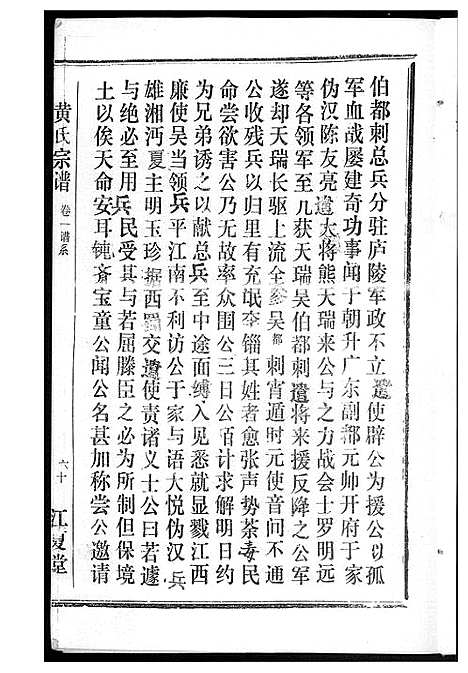 伯都刺总兵分驻庐陵军政不立遣使辟公为援公以孤
军血战屡建奇功事闻于朝升广东副都元帅开府于家
伪汉陈友亮遣大将熊天瑞来公与之力战会士罗明远
等各领军至几获天瑞吴伯都刺遣将来援反降之公军
遂却天瑞长驱上流全参吴都刺宵遁时元使音问不通
公收残兵以归里有充氓李锱其姓者愈张声势荼毒民
命尝欲害公乃无故率众围公三日公佰计求解明日约
为兄弟诱之以献总兵至中途面缚入见悉就显戮江西
廉使吴当领兵平江南不利访公于家与语大悦伪汉兵
雄湘沔夏主明玉珍据西蜀交遣使责诸义士公曰若遽
与绝必至用兵民受其与若屈滕臣之必为所制但保境
土以俟天命安耳钝斋宝童公闻公名甚加称尝公邀请
黄氏宗谱
卷一谱系
六十
江夏堂